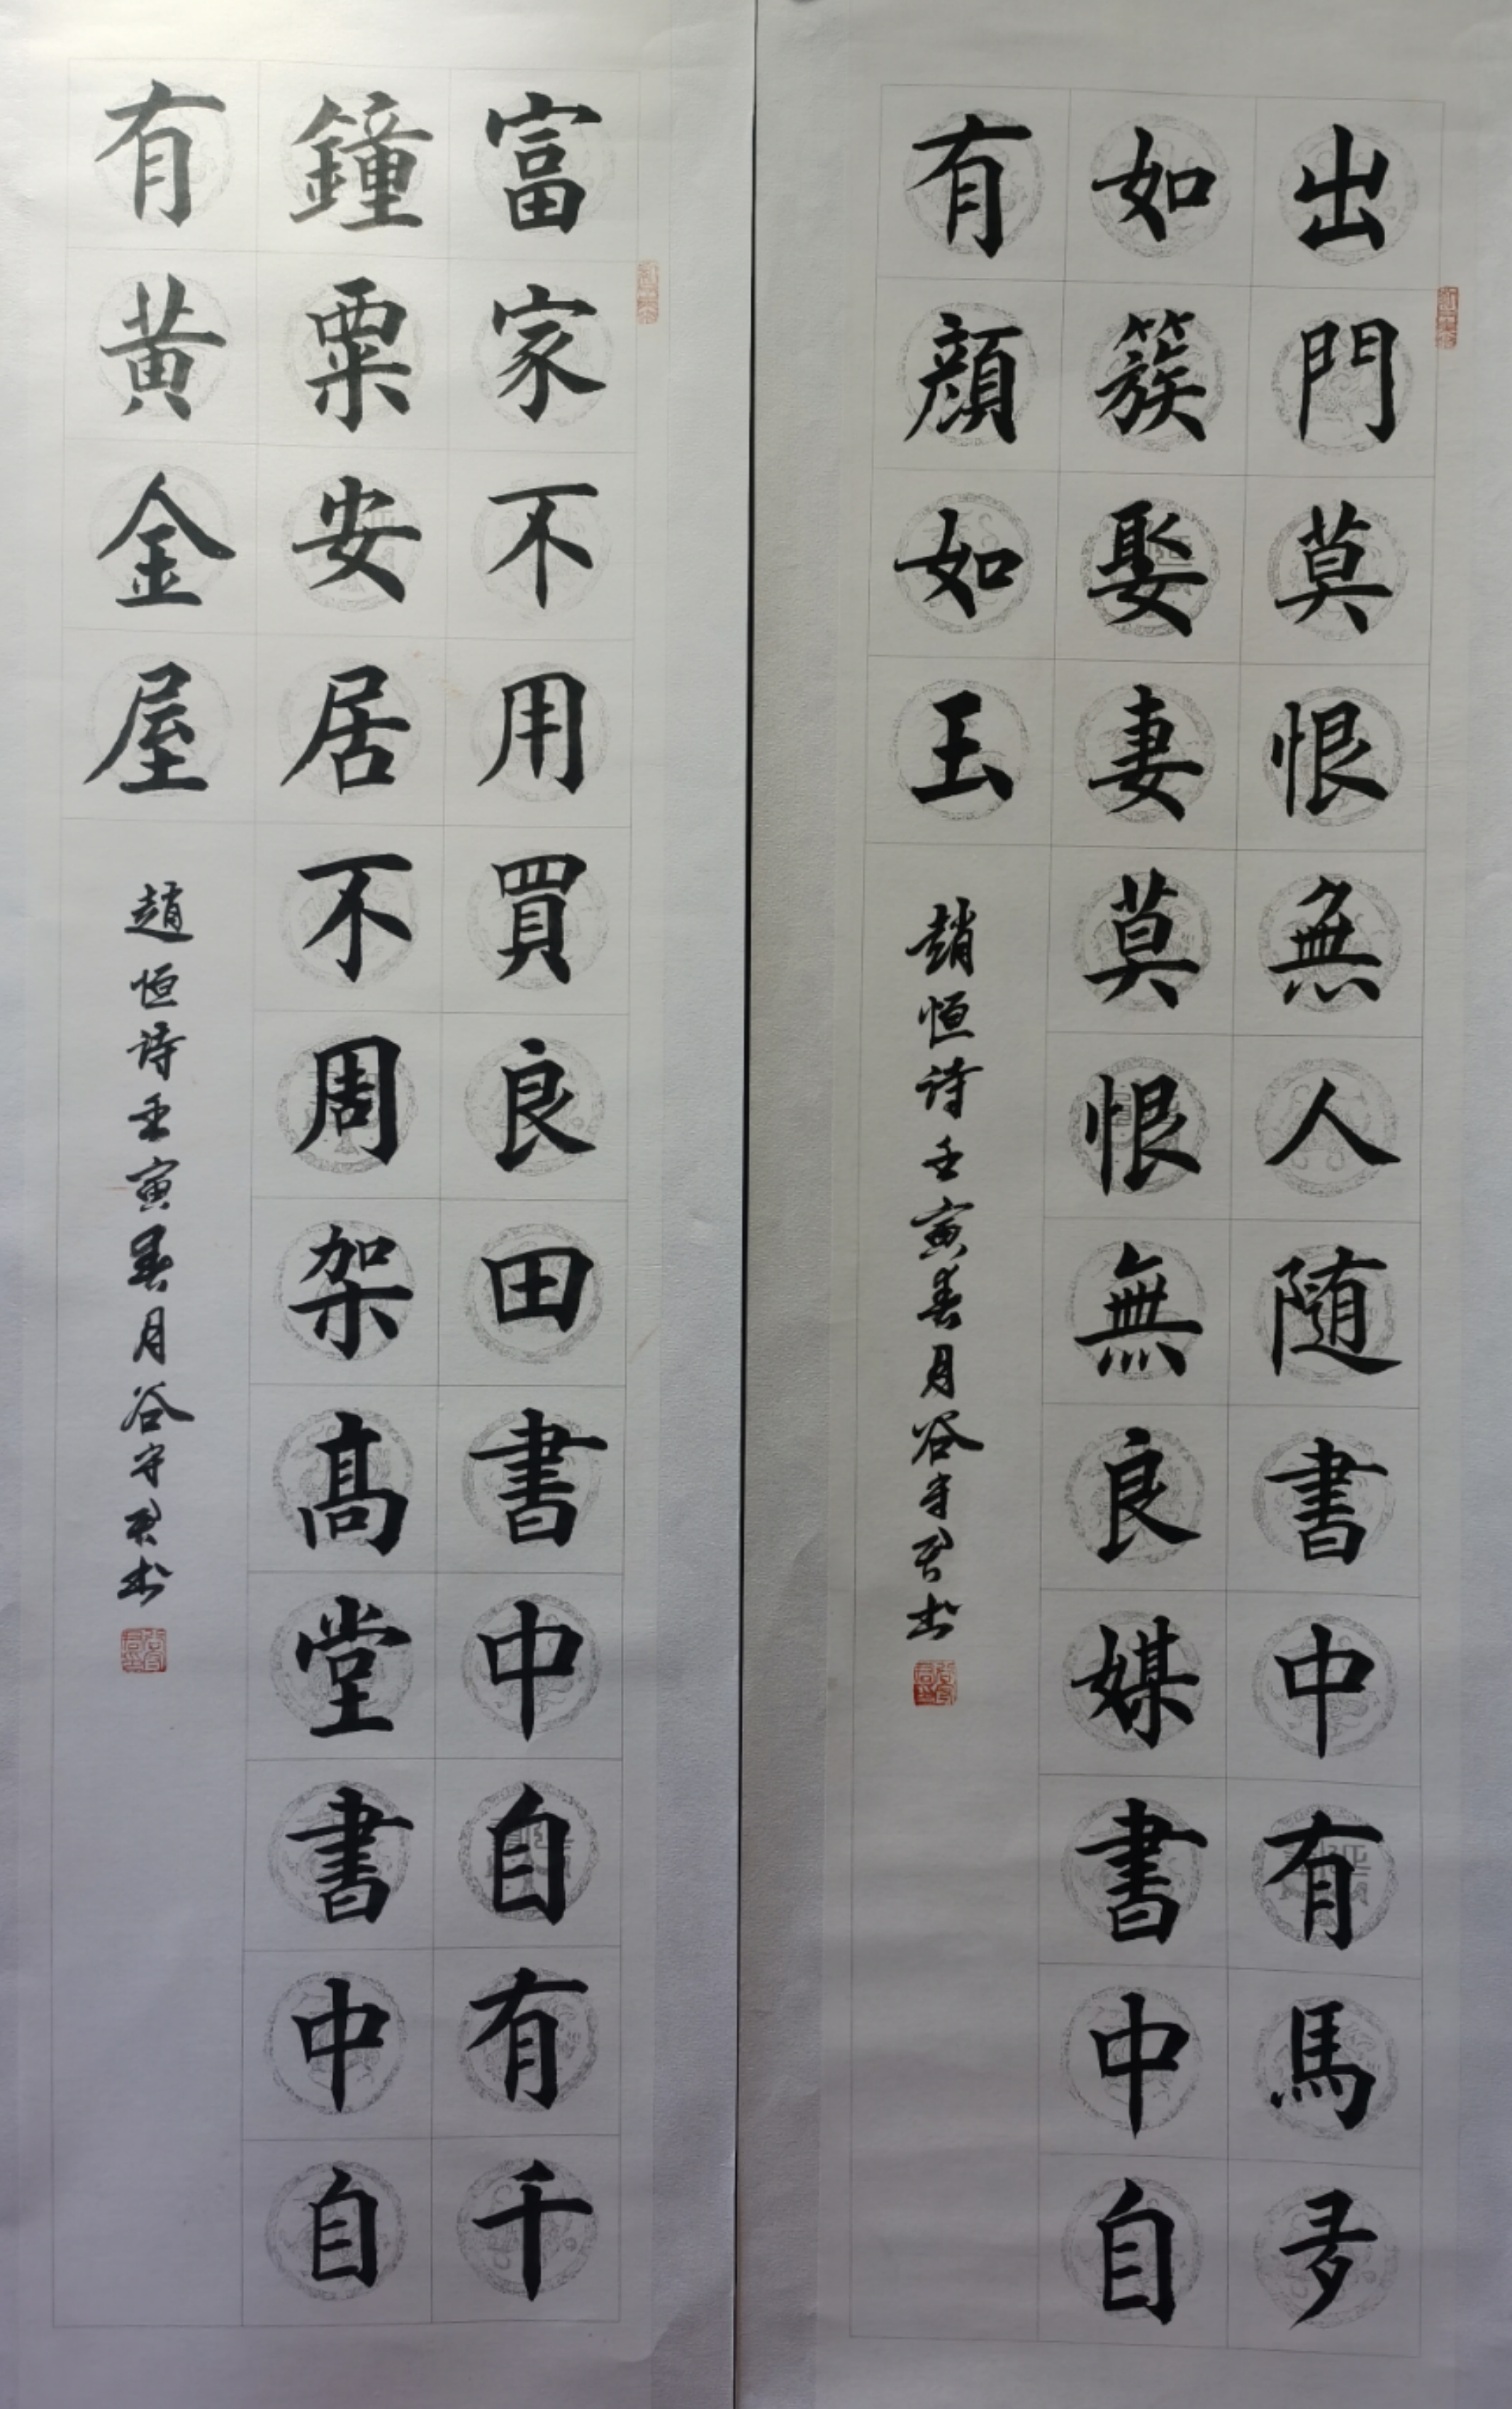 出門莫恨無人随書中有馬多
如簇娶妻莫恨無良媒書中自
有顔如玉
趙恒诗壬寅春月谷守君书
富家不用買良田書中自有千
鐘粟安居不周架髙堂書中自
有黄金屋
趙恒诗壬寅春月谷守君书